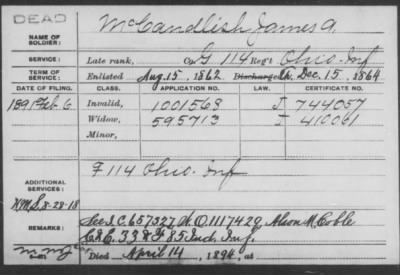 DEAD
NAME OF SOLDIER: McCandlish, James A.
SERVICE: Late rank, Co. G 114 Reg't Ohio. Inf
TERM OF SERVICE: Enlisted Aug. 15, 1862 Discharged Dec. 15, 1864
DATE OF FILING. CLASS. APPLICATION NO. LAW. CERTIFICATE NO.
1891 Feb 6 Invalid, 1001568 J 744057
Widow, 595713 J 410061
Minor,
ADDITIONAL SERVICES: F 114 Ohio. Inf
8-28-18
REMARKS: See I.C. 657327 W.O. 1117429. M. Coble
33 & F 85 Ind. Inf.
Died April 14, 1894, at